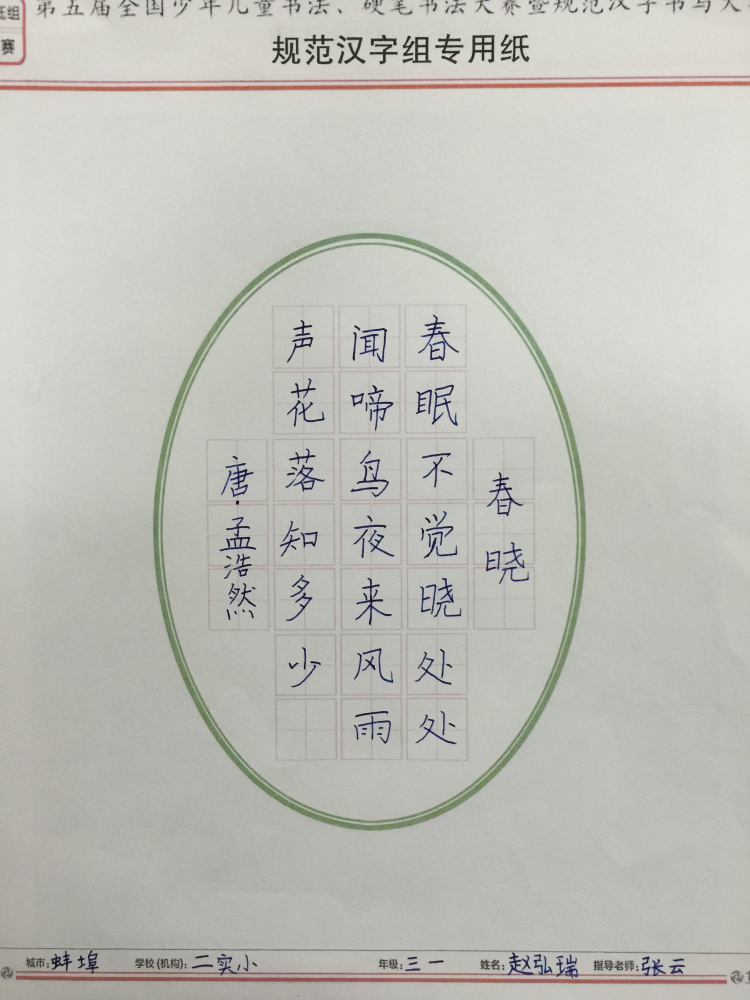 第五届全国少年儿童书法、硬笔书法大赛暨规范汉字书写大
班组
赛
规范汉字组专用纸
春晓
春眠不觉晓处处
闻啼鸟夜来风雨
声花落知多少
唐·孟浩然
城市:蚌埠 学校(机构):二实小 年级:三一 姓名:赵弘瑞 指导老师:张云